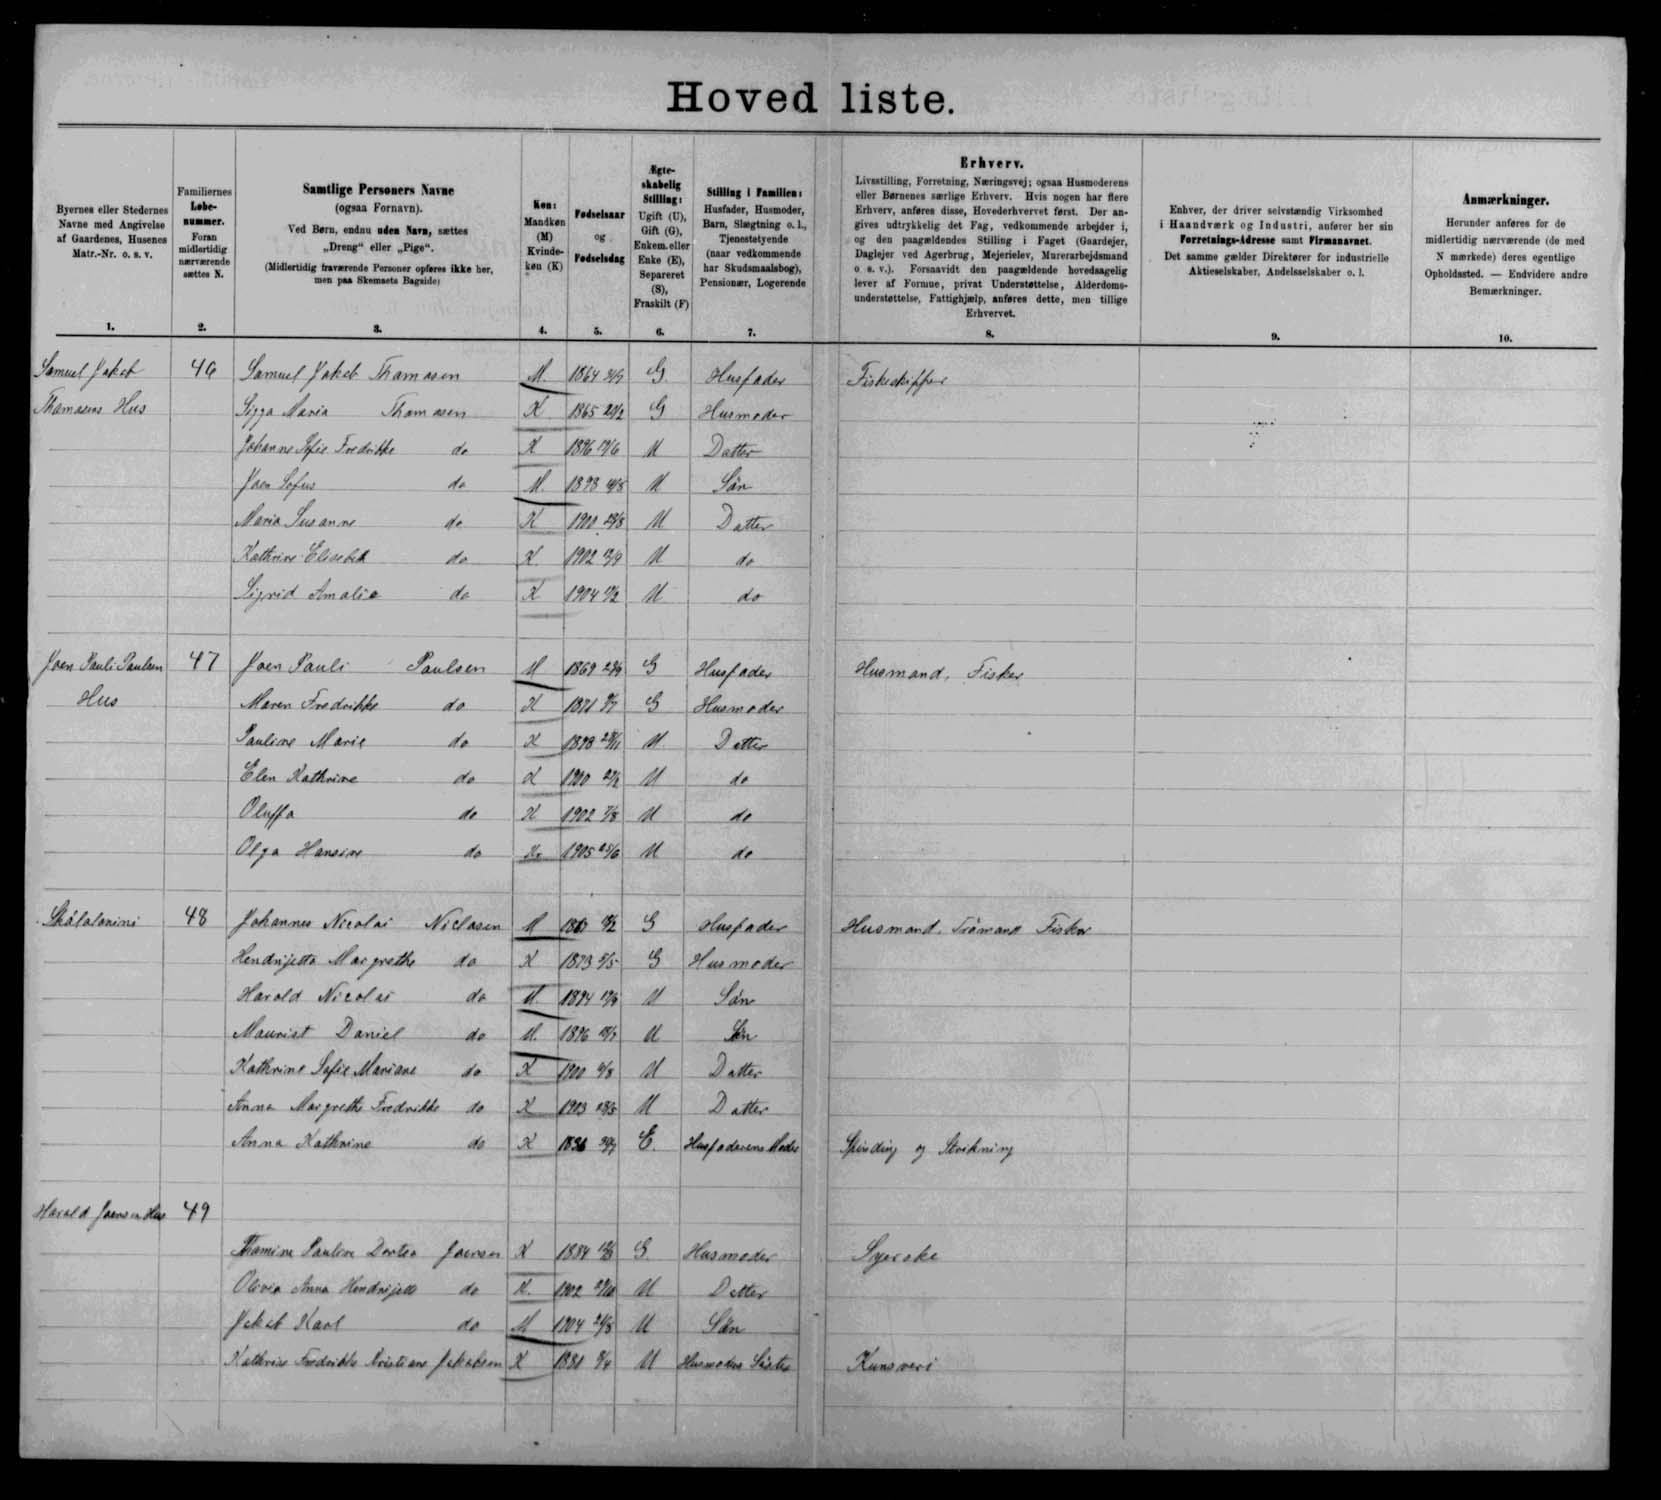 Hovedliste.
Byernes eller Stedernes Navne med Angivelse af Gaardenes, Husenes Matr.-Nr. o. s. v.
1.
Familiernes Løbe-nummer. Foran midlertidig nærværende sættes N.
2.
Samtlige Personers Navne
(ogsaa Fornavn).
Ved Børn, endnu uden Navn, sættes
„Dreng“ eller „Pige“.
(Midlertidig fraværende Personer opføres ikke her,
men paa Skemaets Bagside)
3.
Køn: Mandkøn (M) Kvindekøn (K)
4.
Fødselsaar og Fødselsdag
5.
Ægteskabelig Stilling: Ugift (U), Gift (G), Enkem. eller Enke (E), Separeret (S), Fraskilt (F)
6.
Stilling i Familien: Husfader, Husmoder, Barn, Slægtning o. l., Tjenestetyende (naar vedkommende har Skudsmaalsbog), Pensionær, Logerende
7.
Erhverv.
Livsstilling, Forretning, Næringsvej; ogsaa Husmoderens
eller Børnenes særlige Erhverv. Hvis nogen har flere
Erhverv, anføres disse, Hovederhvervet først. Der an-
gives udtrykkelig det Fag, vedkommende arbejder i,
og den paagældendes Stilling i Faget (Gaardejer,
Daglejer ved Agerbrug, Mejerielev, Murerarbejdsmand
o. s. v.). Forsaavidt den paagældende hovedsagelig
lever af Formue, privat Understøttelse, Alderdoms-
understøttelse, Fattighjælp, anføres dette, men tillige
Erhvervet.
8.
Enhver, der driver selvstændig Virksomhed
i Haandværk og Industri, anfører her sin
Forretnings-Adresse samt Firmanavnet.
Det samme gælder Direktører for industrielle
Aktieselskaber, Andelsselskaber o. l.
9.
Anmærkninger.
Herunder anføres for de
midlertidig nærværende (de med
N mærkede) deres egentlige
Opholdssted. — Endvidere andre
Bemærkninger.
10.
Samuel Jakob 46 Samuel Jakob Thomasen M. 1864 G. Husfader Fiskeskipper
Thomasens Hus Sigga Maria Thomasen K 1865 G Husmoder
Johanne Sofie Fredrikke do K 1896 U Datter
Joen Sofus do M. 1898 U Søn
Maria Susanne do K 1900 U Datter
Kathrine Elisabet do K. 1902 U do
Sigrid Amalie do K 1904 U do
Joen Pauli Paulsen 47 Joen Pauli Paulsen M 1869 G Husfader Husmand, Fisker
Hus Maren Fredrikke do K 1871 G Husmoder
Pauline Marie do K 1898 U. Datter
Elen Kathrine do K 1900 U do
Oluffa do K 1902 7/8 U do
Olga Hansine do K. 1905 25/6 U do
48 Johannes Nicolai Niclasen M G Husfader Husmand. Fisker
Hendrijetta Margrethe do K 1873 5/5 G Husmoder
Harold Nicolai do M. 1894 U Søn
Daniel do M. 1896 U Søn
Kathrine Sofie Mariane do K 1900 U Datter
Anna Margrethe Fredrikke do K 1903 U Datter
Anna Kathrine do K 1836 E. Husfaderens Moder Spinding og Strikning
Harald Joensen Hus 49
Pauline Dortea Joensen K 1884 G. Husmoder Syerske
Olivia Anna do K. 1902 U Datter
Jakob Karl do M 1904 U Søn
Kathrine Fredrikke Kristiane Jakobsen K 1881 U Husmoders Søster